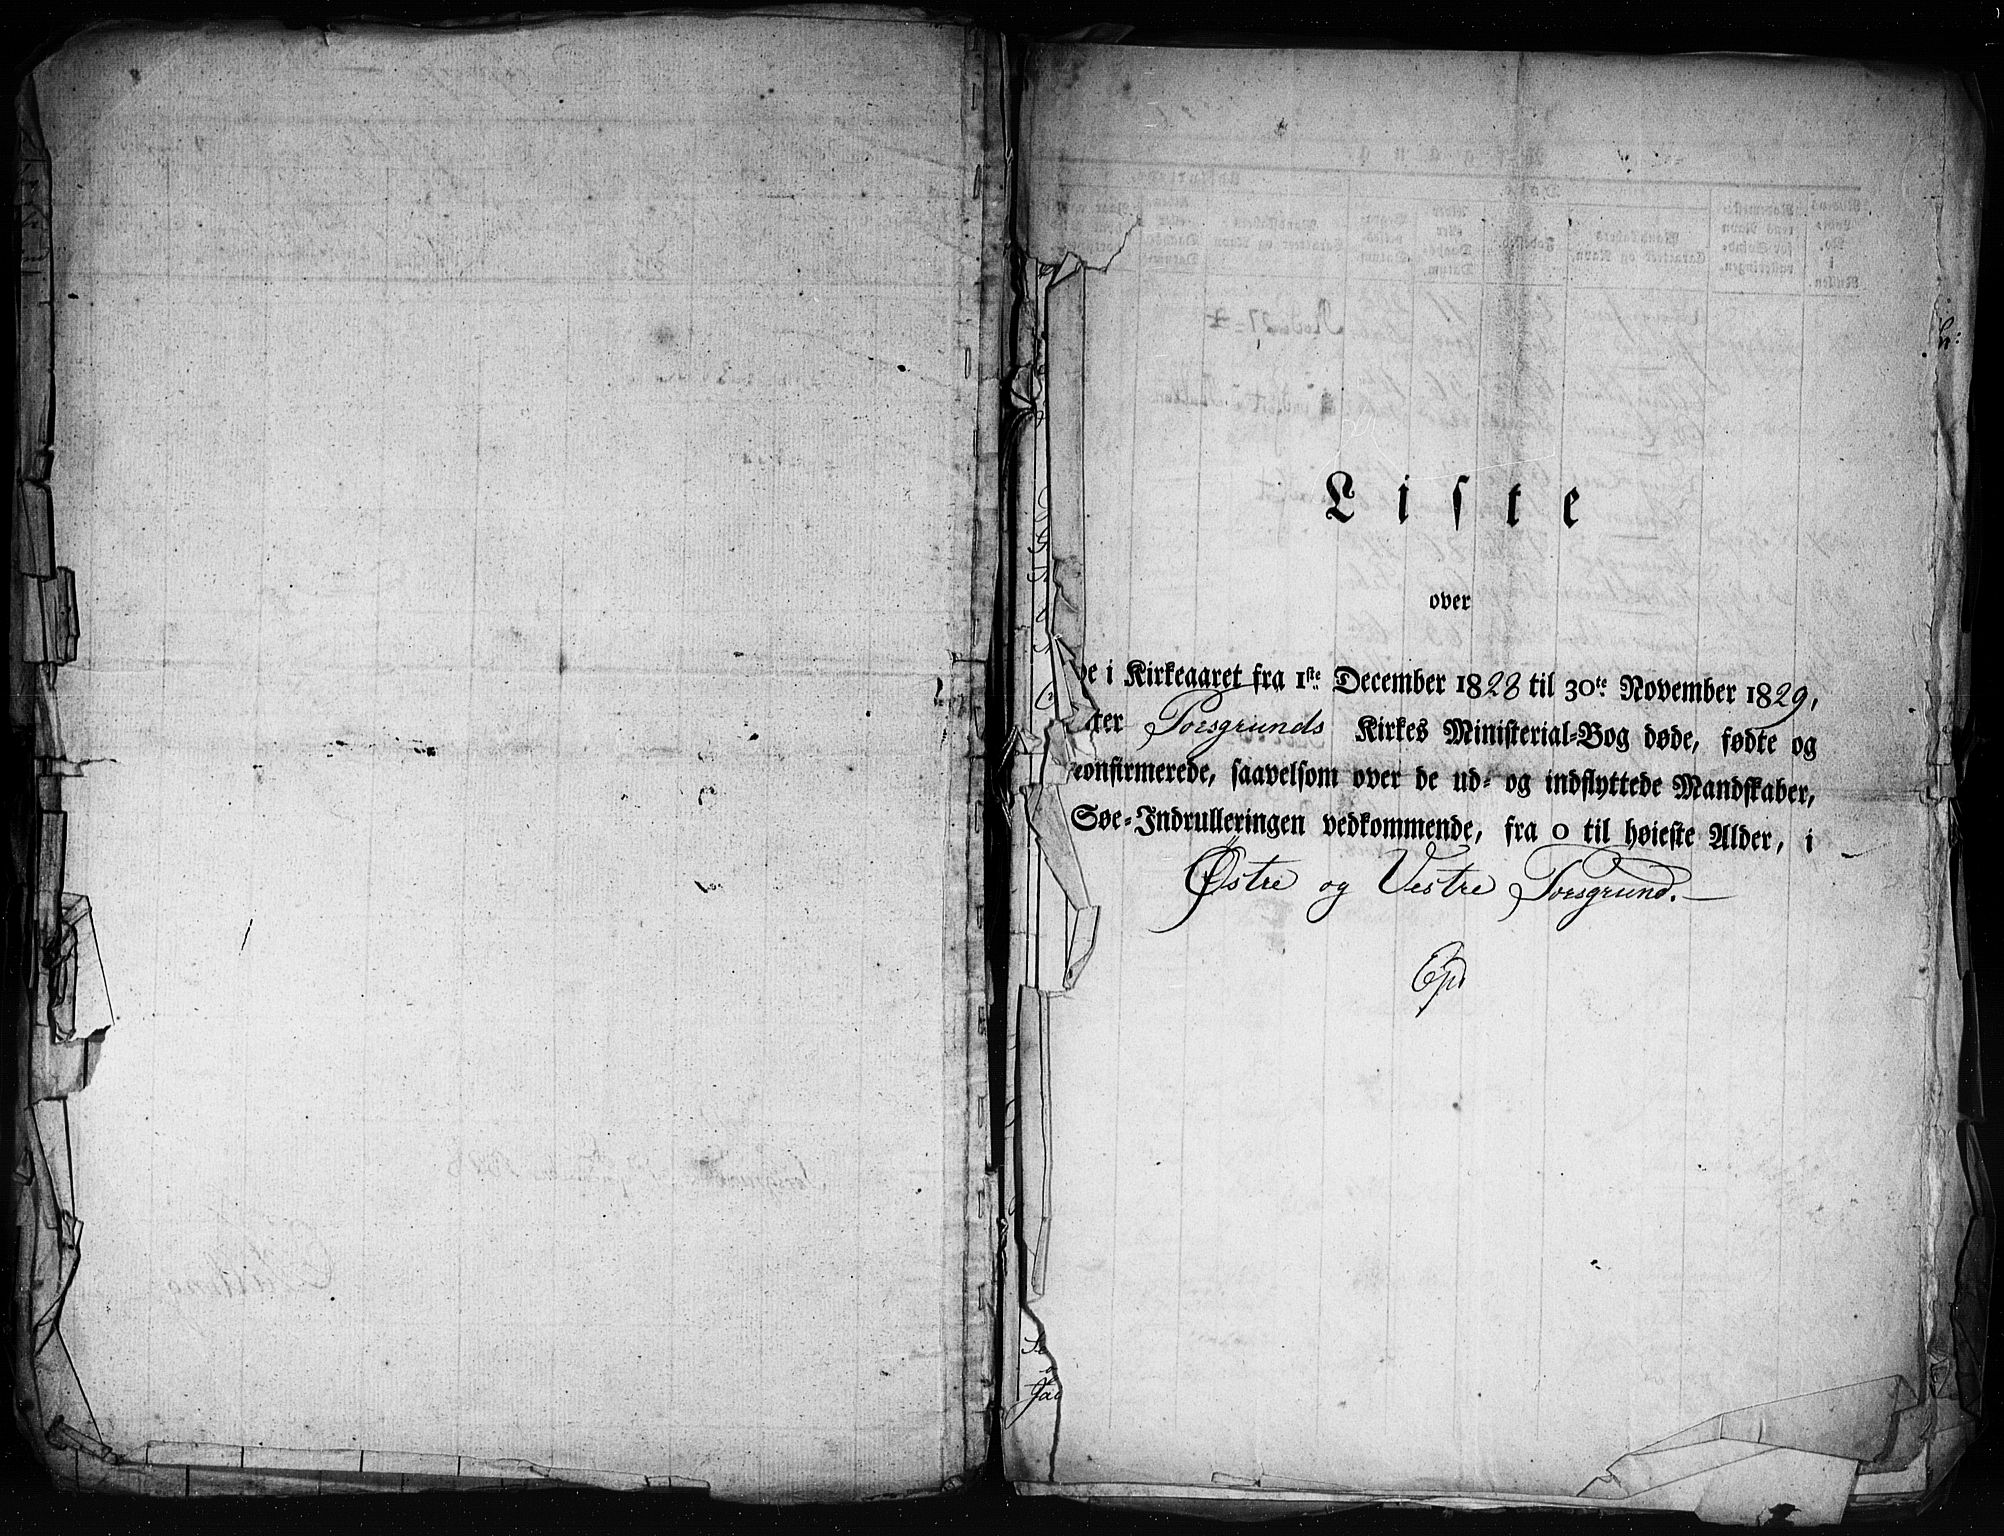 Liste
over
de i Kirkeaaret fra 1ste December 1828 til 30te November 1829,
efter Porsgrunds Kirkes Ministerial-Bog døde, fødte og
confirmerede, saavelsom over de ud- og indflyttede Mandskaber,
Søe-Indrulleringen vedkommende, fra 0 til høieste Alder, i
Østre og Vestre Porsgrund.